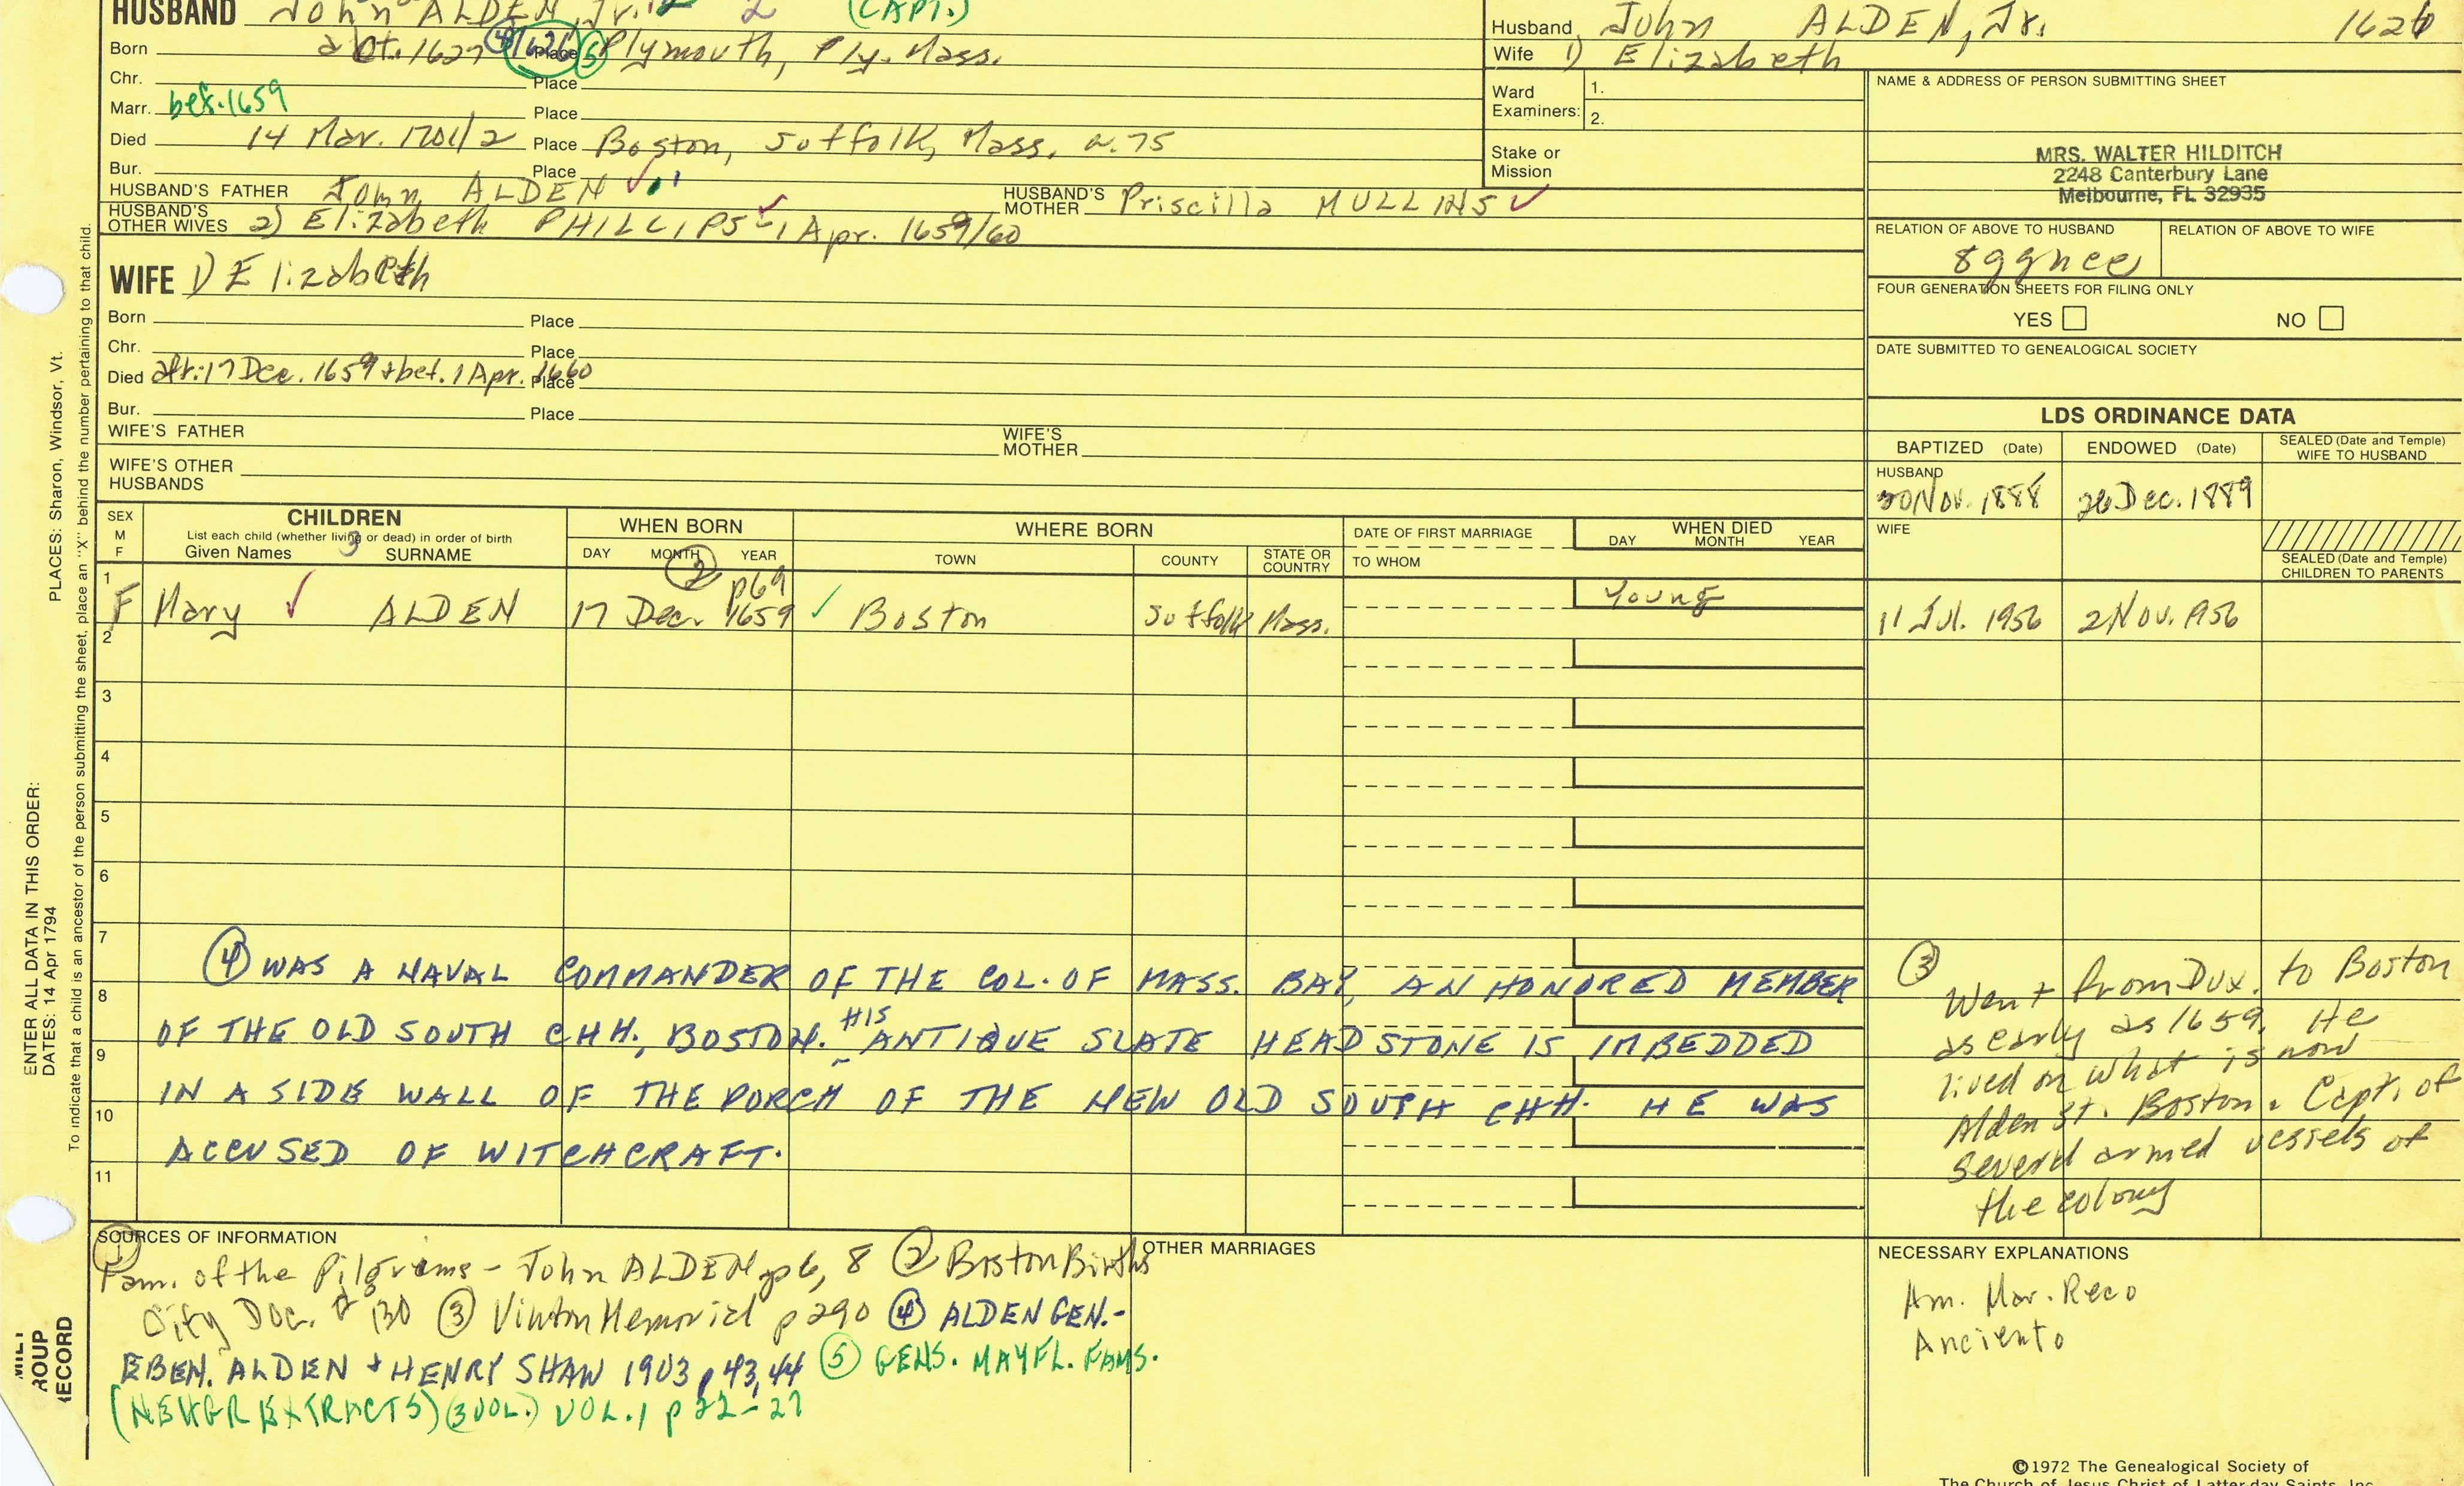 HUSBAND John ALDEN, Jr. 2 (CAPT.)
Born Oct. 1627 ④ 1626 ⑤ Place Plymouth, Ply. Mass.
Chr. Place
Marr. bef. 1659 Place
Died 14 Mar. 1701/2 Place Boston, Suffolk, Mass. a. 75
Bur. Place
HUSBAND'S FATHER John ALDEN
HUSBAND'S MOTHER Priscilla MULLINS
HUSBAND'S OTHER WIVES 2) Elizabeth PHILLIPS - 1 Apr. 1659/60
WIFE 1) Elizabeth
Born Place
Chr. Place
Died aft. 17 Dec. 1659 + bef. 1 Apr. 1660 Place
Bur. Place
WIFE'S FATHER
WIFE'S MOTHER
WIFE'S OTHER HUSBANDS
Husband John ALDEN, Jr. 1626
Wife 1) Elizabeth
Ward Examiners: 1.
2.
Stake or Mission
NAME & ADDRESS OF PERSON SUBMITTING SHEET
MRS. WALTER HILDITCH
2248 Canterbury Lane
Melbourne, FL 32935
RELATION OF ABOVE TO HUSBAND RELATION OF ABOVE TO WIFE
8ggnee
FOUR GENERATION SHEETS FOR FILING ONLY
YES NO
DATE SUBMITTED TO GENEALOGICAL SOCIETY
LDS ORDINANCE DATA
BAPTIZED (Date) ENDOWED (Date) SEALED (Date and Temple) WIFE TO HUSBAND
HUSBAND
30 Nov. 1888 26 Dec. 1889
WIFE
SEALED (Date and Temple) CHILDREN TO PARENTS
SEX M F
CHILDREN
List each child (whether living or dead) in order of birth
Given Names 3 SURNAME
WHEN BORN
DAY MONTH YEAR
WHERE BORN
TOWN COUNTY STATE OR COUNTRY
DATE OF FIRST MARRIAGE
TO WHOM
WHEN DIED
DAY MONTH YEAR
② p69
1 F Mary ✓ ALDEN 17 Dec. 1659 ✓ Boston Suffolk Mass. Young 11 Jul. 1956 2 Nov. 1956
2
3
4
5
6
7
8
9
10
11
④ WAS A NAVAL COMMANDER OF THE COL. OF MASS. BAY, AN HONORED MEMBER
OF THE OLD SOUTH CHH., BOSTON. HIS ANTIQUE SLATE HEADSTONE IS IMBEDDED
IN A SIDE WALL OF THE PORCH OF THE NEW OLD SOUTH CHH. HE WAS
ACCUSED OF WITCHCRAFT.
③ Went from Dux. to Boston
as early as 1659. He
lived on what is now
Alden St. Boston. Capt. of
several armed vessels of
the colony
SOURCES OF INFORMATION
① Fam. of the Pilgrims - John ALDEN pp 6, 8 ② Boston Births
City Doc. # 130 ③ Vinton Memorial p 290 ④ ALDEN GEN. -
EBEN. ALDEN + HENRY SHAW 1903 p 43, 44 ⑤ GENS. MAYFL. FAMS.
(NEHGR EXTRACTS) (3 VOL.) VOL. 1 p 22-27
OTHER MARRIAGES
NECESSARY EXPLANATIONS
Am. Mar. Reco
Anciento
ENTER ALL DATA IN THIS ORDER:
DATES: 14 Apr 1794
PLACES: Sharon, Windsor, Vt.
To indicate that a child is an ancestor of the person submitting the sheet, place an "X" behind the number pertaining to that child.
©1972 The Genealogical Society of
The Church of Jesus Christ of Latter-day Saints, Inc.